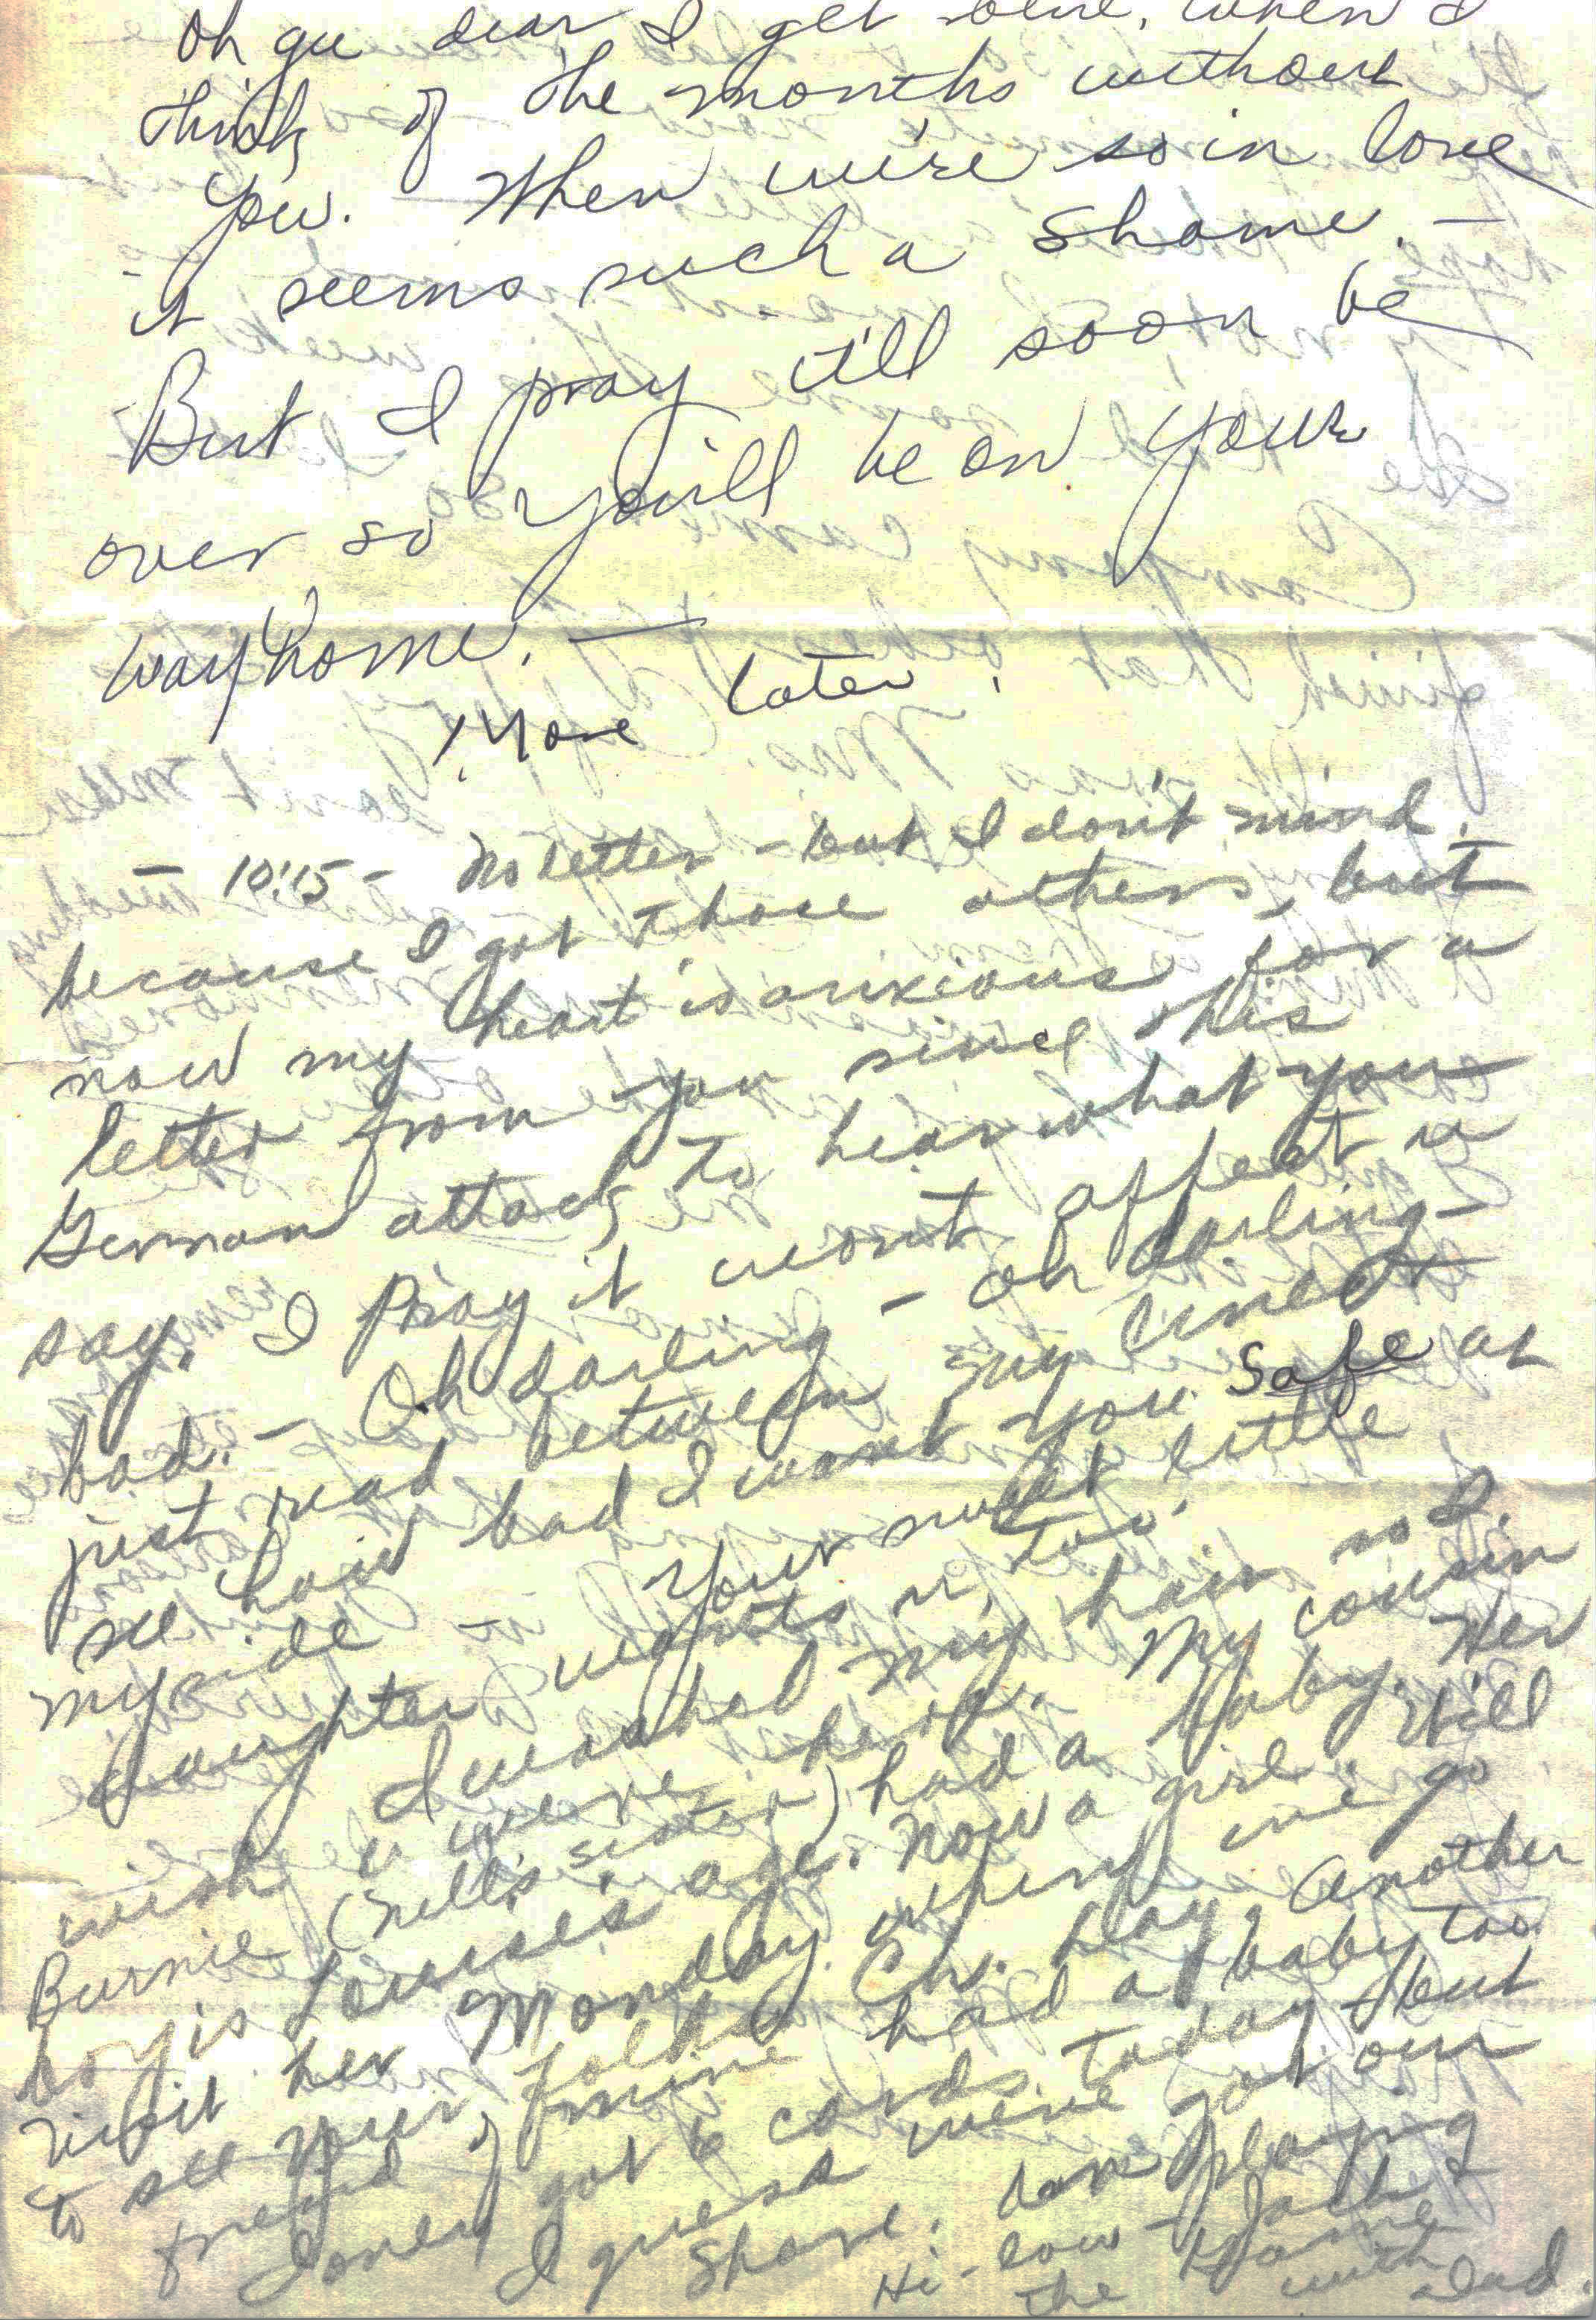 Oh gee dear I get blue, when I
think of the months without
you. When we're so in love
it seems such a shame. —
But I pray it'll soon be
over so you'll be on your
way home. —
More later.
- 10:15 - No letter - but I don't mind,
because I got those others, but
now my heart is anxious for a
letter from you since this
German attack to hear what you
say. I pray it wont affect u
bad. - Oh darling - oh darling -
just read between my lines
see how bad I want you safe at
my side - Your sweet little
daughter wants u, too.
I washed my hair no I.
wish u were here. My cousin
Burnie (Nell's sister) had a baby. Her
boy is Louise's age. Now a girl. Will
visit her Monday when we go
to see your folks Ch. Day. Another
friend of mine had a baby too.
I only got 6 cards today - but
I guess we've got our
share. Am playing
Hi-low - Jack &
the Game
with
dad.